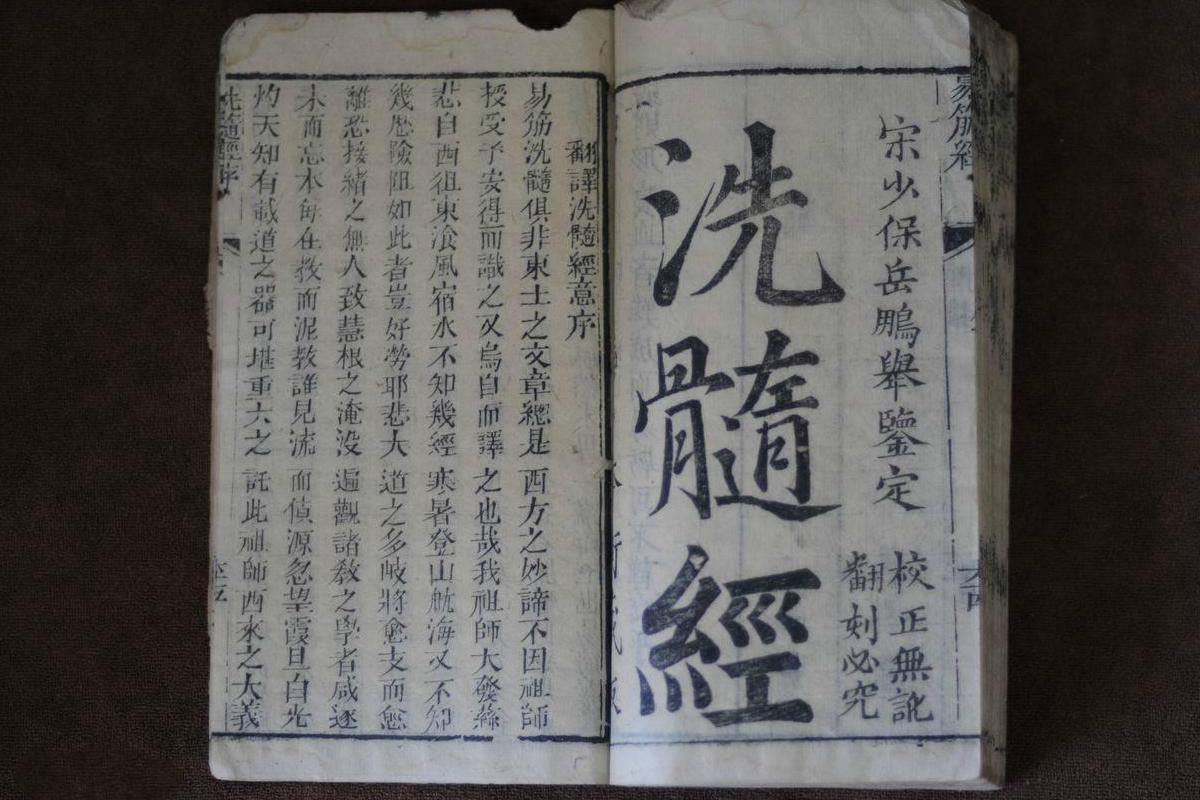 易筋經
宋少保岳鵬舉鑒定
校正無訛
翻刻必究
洗髓經
翻譯洗髓經意序
易筋洗髓俱非東土之文章總是西方之妙諦不因祖師
授受予安得而識之又烏自而譯之也哉我祖師大發慈
悲自西徂東飡風宿水不知幾經寒暑登山航海又不知
幾歷險阻如此者豈好勞耶悲大道之多岐將愈支而愈
離恐接緒之無人致慧根之淹没遍觀諸教之學者咸逐
末而忘本每在教而泥教誰見流而偵源忽望霞旦白光
灼天知有載道之器可堪重大之託此祖師西來之大義
洗髓經序